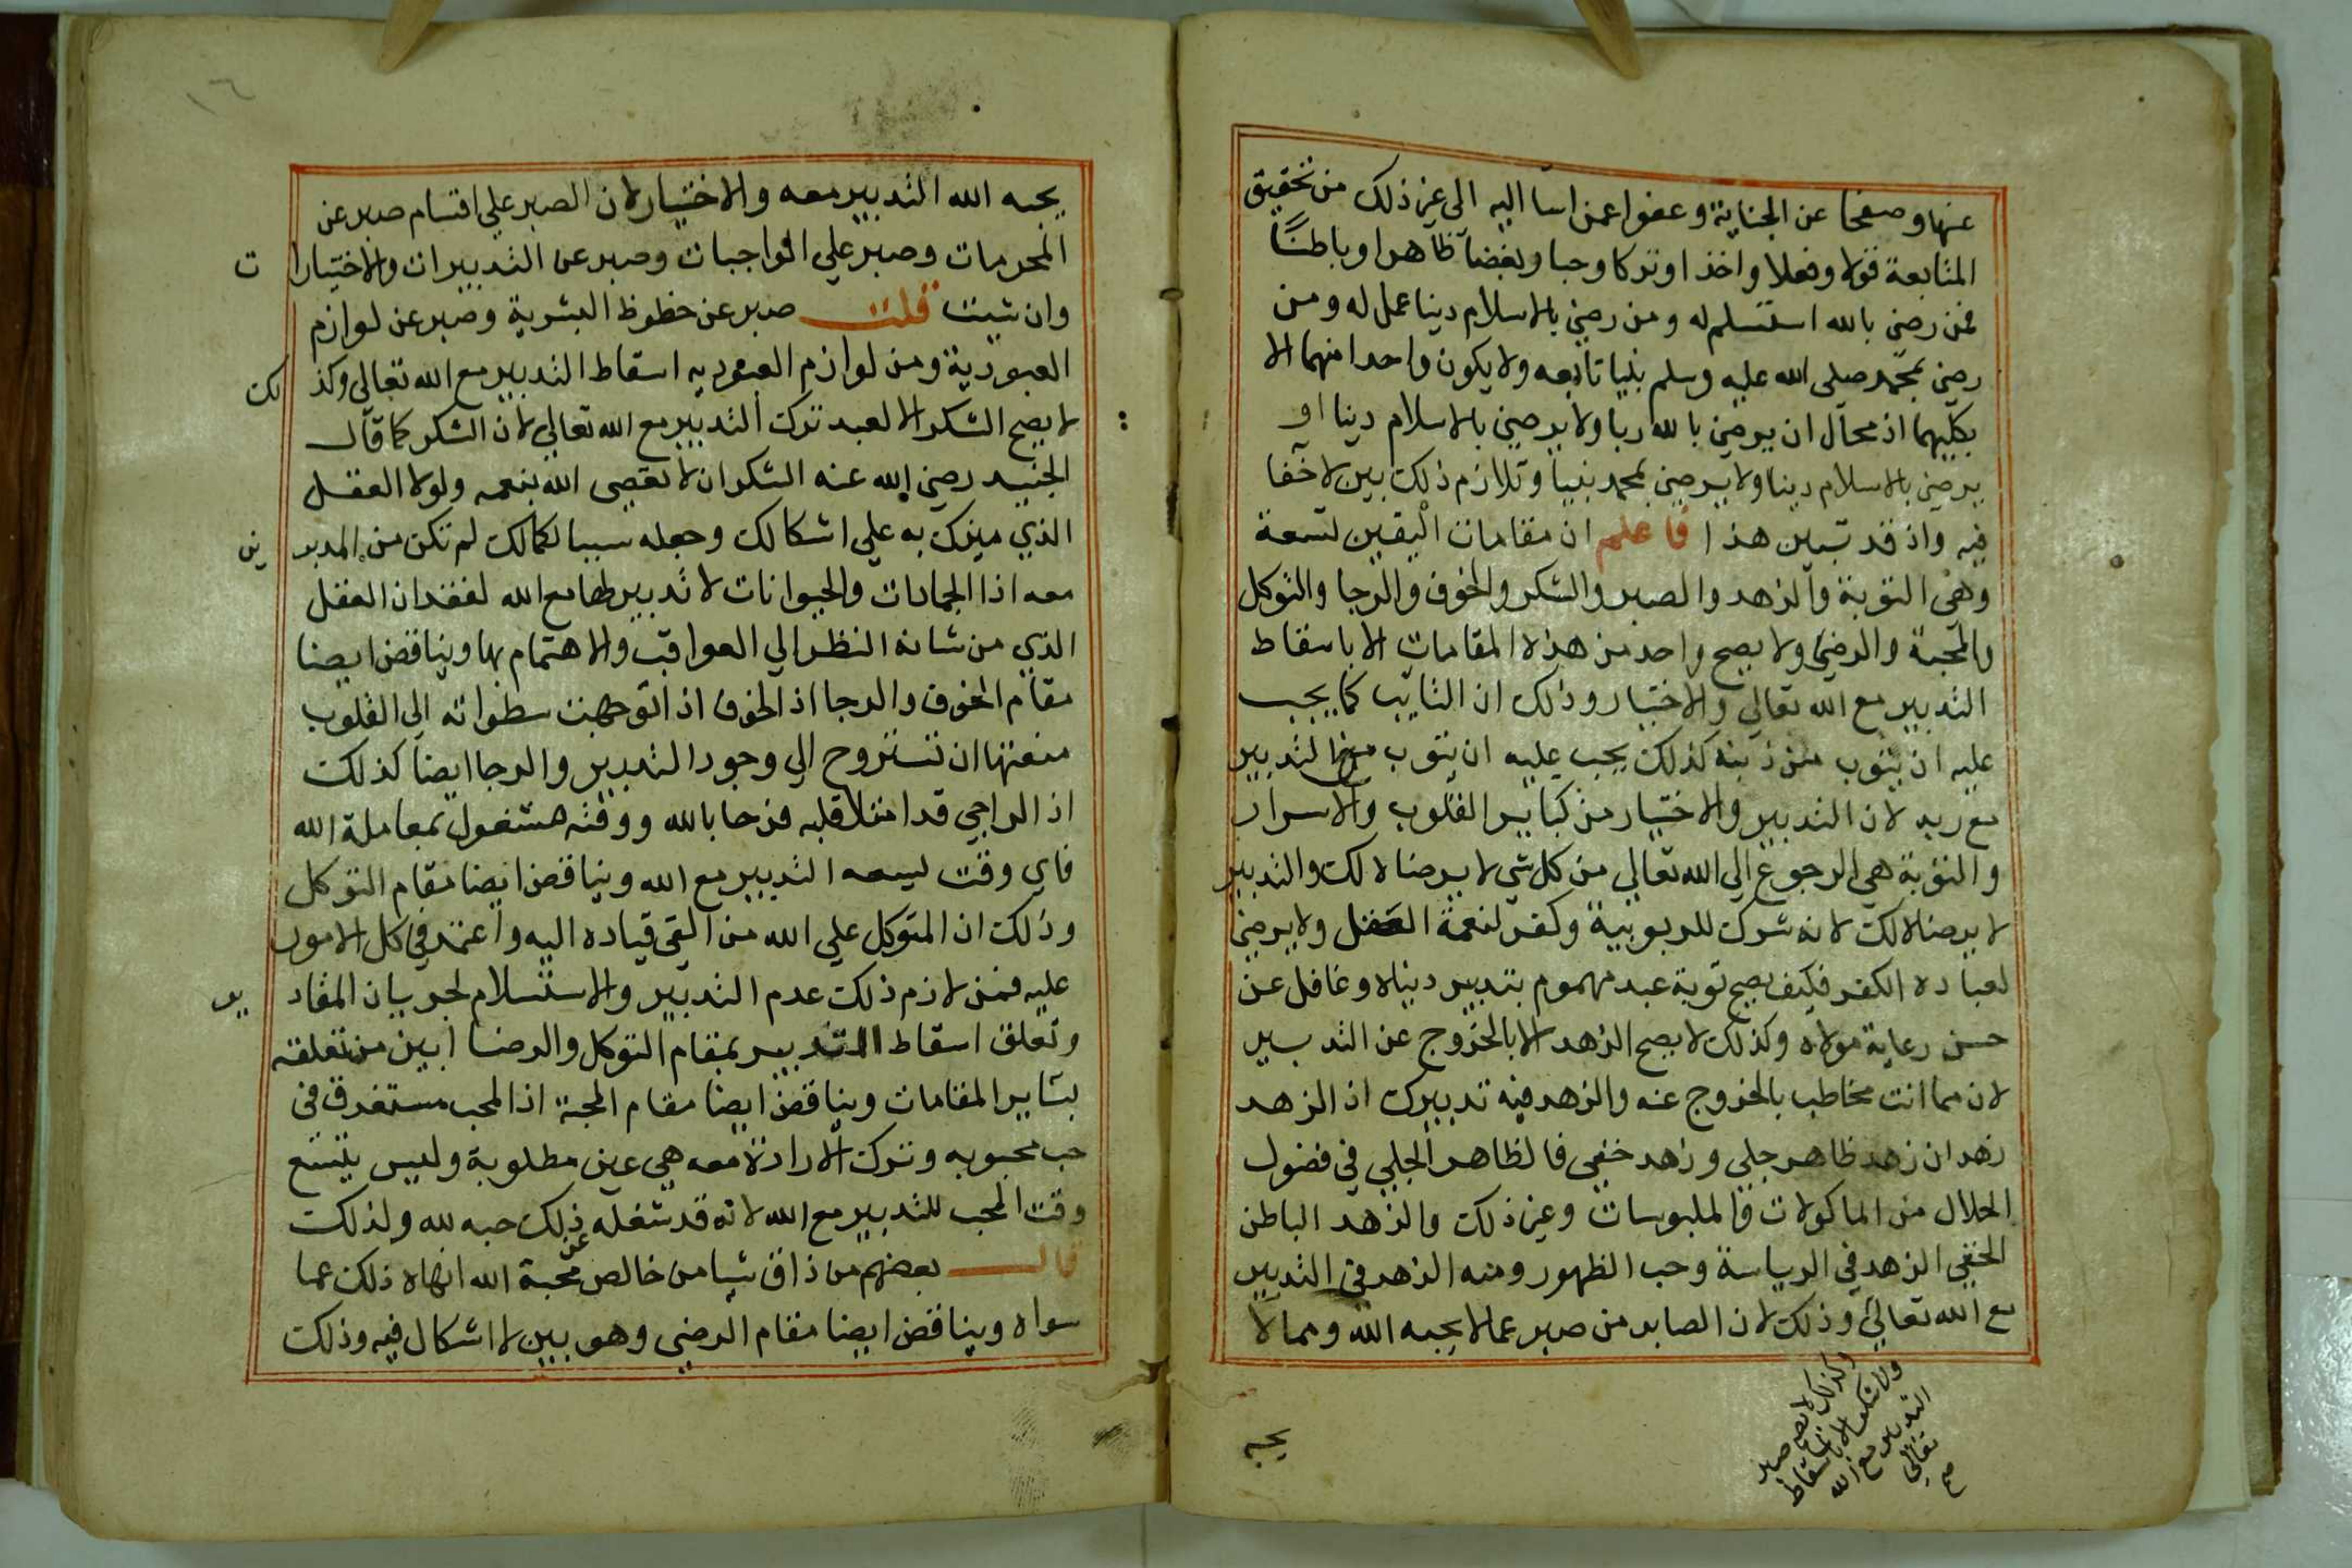 عنها وصفحا عن الجناية وعفوا عمن اسا اليه الى غير ذلك من تحقيق
المتابعة قولا وفعلا واخذا وتركا وحبا وبغضا ظاهرا وباطنًا
فمن رضي بالله استسلم له ومن رضي بالاسلام دينا عمل له ومن
رضي بمحمد صلى الله عليه وسلم نبيا تابعه ولا يكون واحدا منهما الا
بكليهما اذ محال ان يرضي بالله ربا ولا يرضي بالاسلام دينا او
يرضي بالاسلام دينا ولا يرضي بمحمد نبيا وتلازم ذلك بين لا خفا
فيه واذ قد تبين هذا فاعلم ان مقامات اليقين تسعة
وهي التوبة والزهد والصبر والشكر والخوف والرجا والتوكل
والمحبة والرضي ولا يصح واحد من هذه المقامات الا باسقاط
التدبير مع الله تعالي والاختيار وذلك ان التايب كما يجب
عليه ان يتوب من ذنبه كذلك يجب عليه ان يتوب من التدبير
مع ربه لان التدبير والاختيار من كباير القلوب والاسرار
والتوبة هي الرجوع الي الله تعالي من كل شي لا يرضاه لك والتدبير
لا يرضاه لك لانه شرك للربوبية وكفر لنعمة العقل ولا يرضي
لعباده الكفر فكيف يصح توبة عبد مهموم بتدبير دنياه وغافل عن
حسن رعاية مولاه وكذلك لا يصح الزهد الا بالخروج عن التدبير
لان مما انت مخاطب بالخروج عنه والزهد فيه تدبيرك اذ الزهد
زهدان زهد ظاهر جلي وزهد خفي فالظاهر الجلي في فضول
الحلال من الماكولات والملبوسات وغير ذلك والزهد الباطن
الخفي الزهد في الرياسة وحب الظهور ومنه الزهد في التدبير
مع الله تعالي وذلك لان الصابر من صبر عما لا يحبه الله ومما لا
وكذلك لا يصح صبر
ولا شكر الا باسقاط
التدبير مع الله
تعالي
صح
يحبه
١٦
يحبه الله التدبير معه والاختيار لان الصبر علي اقسام صبر عن
المحرمات وصبر علي الواجبات وصبر عن التدبيرات والاختيارات
وان شيت قلت صبر عن حظوظ البشرية وصبر عن لوازم
العبودية ومن لوازم العبوديه اسقاط التدبير مع الله تعالي وكذلك
لا يصح الشكر الا لعبد ترك التدبير مع الله تعالي لان الشكر كما قال
الجنيد رضي الله عنه الشكر ان لا تعصي الله بنعمه ولولا العقل
الذي ميزك به علي اشكالك وجعله سببا لكمالك لم تكن من المدبرين
معه اذا الجمادات والحيوانات لا تدبير لها مع الله لفقدان العقل
الذي من شانه النظر الي العواقب والاهتمام بها ويناقض ايضا
مقام الخوف والرجا اذ الخوف اذا توجهت سطواته الي القلوب
منعتها ان تستروح الي وجود التدبير والرجا ايضا كذلك
اذ الراجي قد امتلا قلبه فرحا بالله ووقته مشغول بمعاملة الله
فاي وقت ليسعه التدبير مع الله ويناقض ايضا مقام التوكل
وذلك ان المتوكل علي الله من القي قياده اليه واعتمد في كل الامور
عليه فمن لازم ذلك عدم التدبير والاستسلام لجريان المقادير
وتعلق اسقاط التدبير بمقام التوكل والرضا ابين من تعلقه
بساير المقامات ويناقض ايضا مقام المحبة اذ المحب مستغرق في
حب محبوبه وترك الارادة معه هي عين مطلوبة وليس يتسع
وقت المحب للتدبير مع الله لانه قد شغله عن ذلك حبه لله ولذلك
قال بعضهم من ذاق شيا من خالص محبة الله الهاه ذلك عما
سواه ويناقض ايضا مقام الرضي وهو بين لا اشكال فيه وذلك